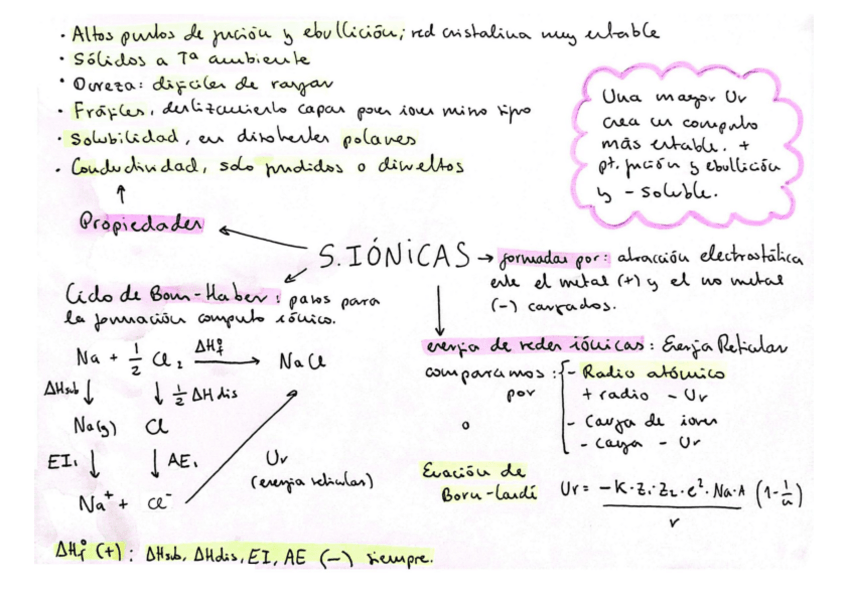 · Altos puntos de fusión y ebullición; red cristalina muy estable
· Sólidos a Tª ambiente
· Dureza: difíciles de rayar
· Frágiles, deslizamiento capas pones iones mismo tipo
· Solubilidad, en disolventes polares
· Conductividad, solo fundidos o disueltos
Una mayor Ur
crea un compuesto
más estable. +
pt. fusión y ebullición
y - soluble.
Propiedades
S. IÓNICAS
→ formadas por: atracción electrostática
entre el metal (+) y el no metal
(-) cargados.
Ciclo de Born-Haber: pasos para
la formación compuesto iónico.
Na + 1/2 Cl₂ ΔHf° → NaCl
ΔHsub ↓ ↓ 1/2 ΔH dis
Na(g) Cl
EI₁ ↓ ↓ AE₁
Na⁺ + Cl⁻
Ur
(energía reticular)
energía de redes iónicas: Energía Reticular
comparamos por: - Radio atómico
+ radio - Ur
o
- Carga de iones
- carga - Ur
Ecuación de
Born-Landé
Ur = -K·Z₁·Z₂·e²·Na·A / r (1-1/n)
ΔHf° (+): ΔHsub, ΔHdis, EI, AE (-) siempre.